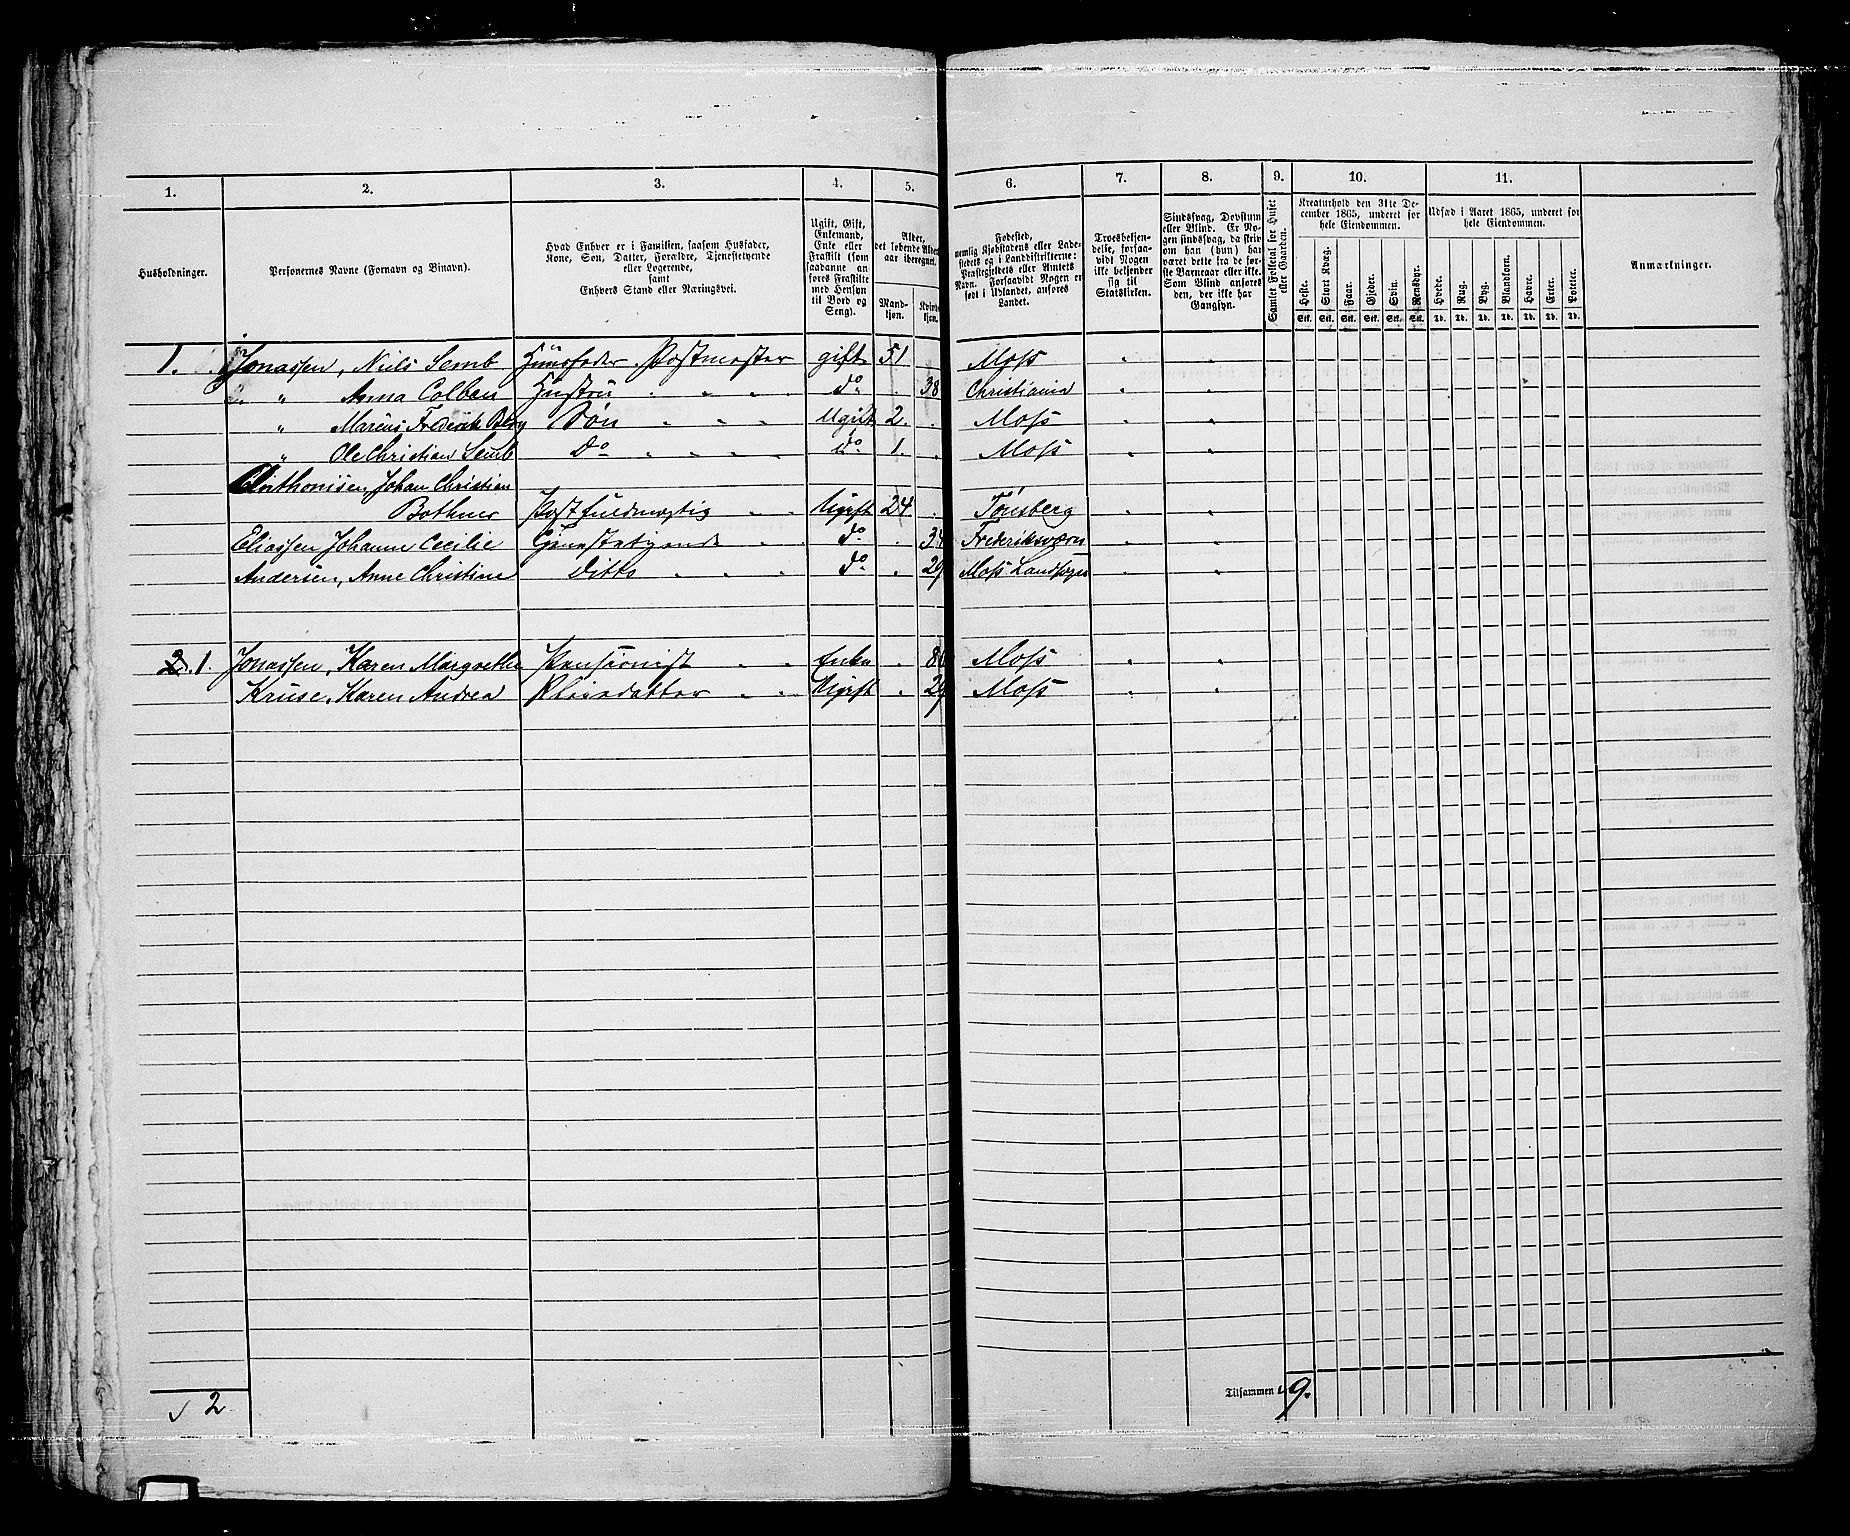 1. 2. 3. 4. 5. 6. 7. 8. 9. 10. 11.
Husholdninger.
Personernes Navne (Fornavn og Binavn).
Hvad Enhver er i Familien, saasom Husfader,
Kone, Søn, Datter, Forældre, Tjenestetyende
eller Logerende,
samt
Enhvers Stand eller Næringsvei.
Ugift, Gift,
Enkemand,
Enke eller
Fraskilt (som
saadanne an-
føres Fraskilte
med Hensyn
til Bord og
Seng).
Alder,
det løbende Alders-
aar iberegnet.
Mand-
kjøn.
Kvinde-
kjøn.
Fødested,
nemlig Kjøbstadens eller Lade-
stedets og i Landdistrikterne:
Præstegjeldets eller Amtets
Navn. Forsaavidt Nogen er
født i Udlandet, anføres
Landet.
Troesbekjen-
delse, forsaa-
vidt Nogen
ikke bekjender
sig til
Statskirken.
Sindssvag, Døvstum
eller Blind. Er No-
gen sindssvag, da skriv
om han (hun) har
været dette fra de før-
ste Barneaar eller ikke.
Som Blind anføres
den, der ikke har
Gangsyn.
Samlet Folketal for Huset
eller Gaarden.
Kreaturhold den 31te De-
cember 1865, underet for
hele Eiendommen.
Heste. Stort Kvæg. Faar. Gjeder. Svin. Rensdyr.
Stk. Stk. Stk. Stk. Stk. Stk.
Udsæd i Aaret 1865, underet for
hele Eiendommen.
Hvede. Rug. Byg. Blandkorn. Havre. Erter. Poteter.
Td. Td. Td. Td. Td. Td. Td.
Anmærkninger.
1. Jonassen, Niels Semb Huusfader, Postmester gift 51 Moss " "
" Anna Colban Hustru " " " do . 38 Christiania " "
" Marius Frederik Berg Søn " " " Ugift 2. . Moss " "
" Ole Christian Semb do " " " do. 1. . Moss " "
Anthonisen, Johan Christian
Bothner Postfuldmægtig " " Ugift 24. . Tønsberg " "
Eliassen Johanne Cecilie Tjenestetyende " do . Fredriksværn " "
Andersen, Anne Christine Ditto " " " do . 29 Moss Landsogn " "
2. 1. Jonassen, Karen Margrethe Pensionist " " Enke . Moss " "
Kruse, Karen Andrea Pleiedatter " " Ugift . 29 Moss " "
2
Tilsammen 9.